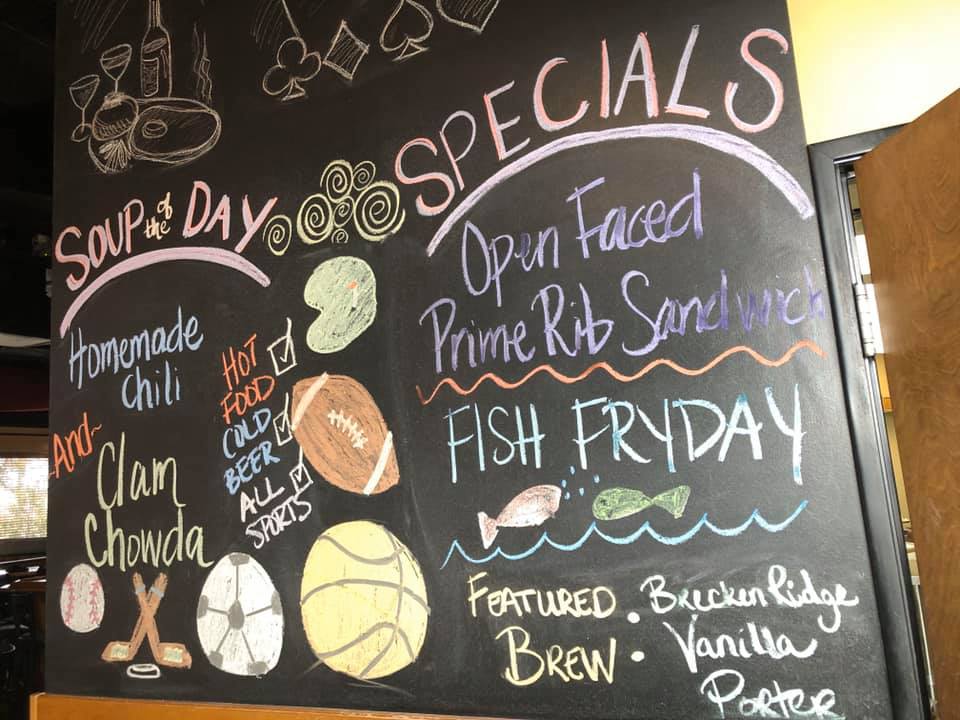 SOUP of the DAY
Homemade
Chili
And~
Clam
Chowda
HOT
FOOD
COLD
BEER
ALL
SPORTS
SPECIALS
Open Faced
Prime Rib Sandwich
FISH FRYDAY
FEATURED
BREW
BreckenRidge
Vanilla
Porter